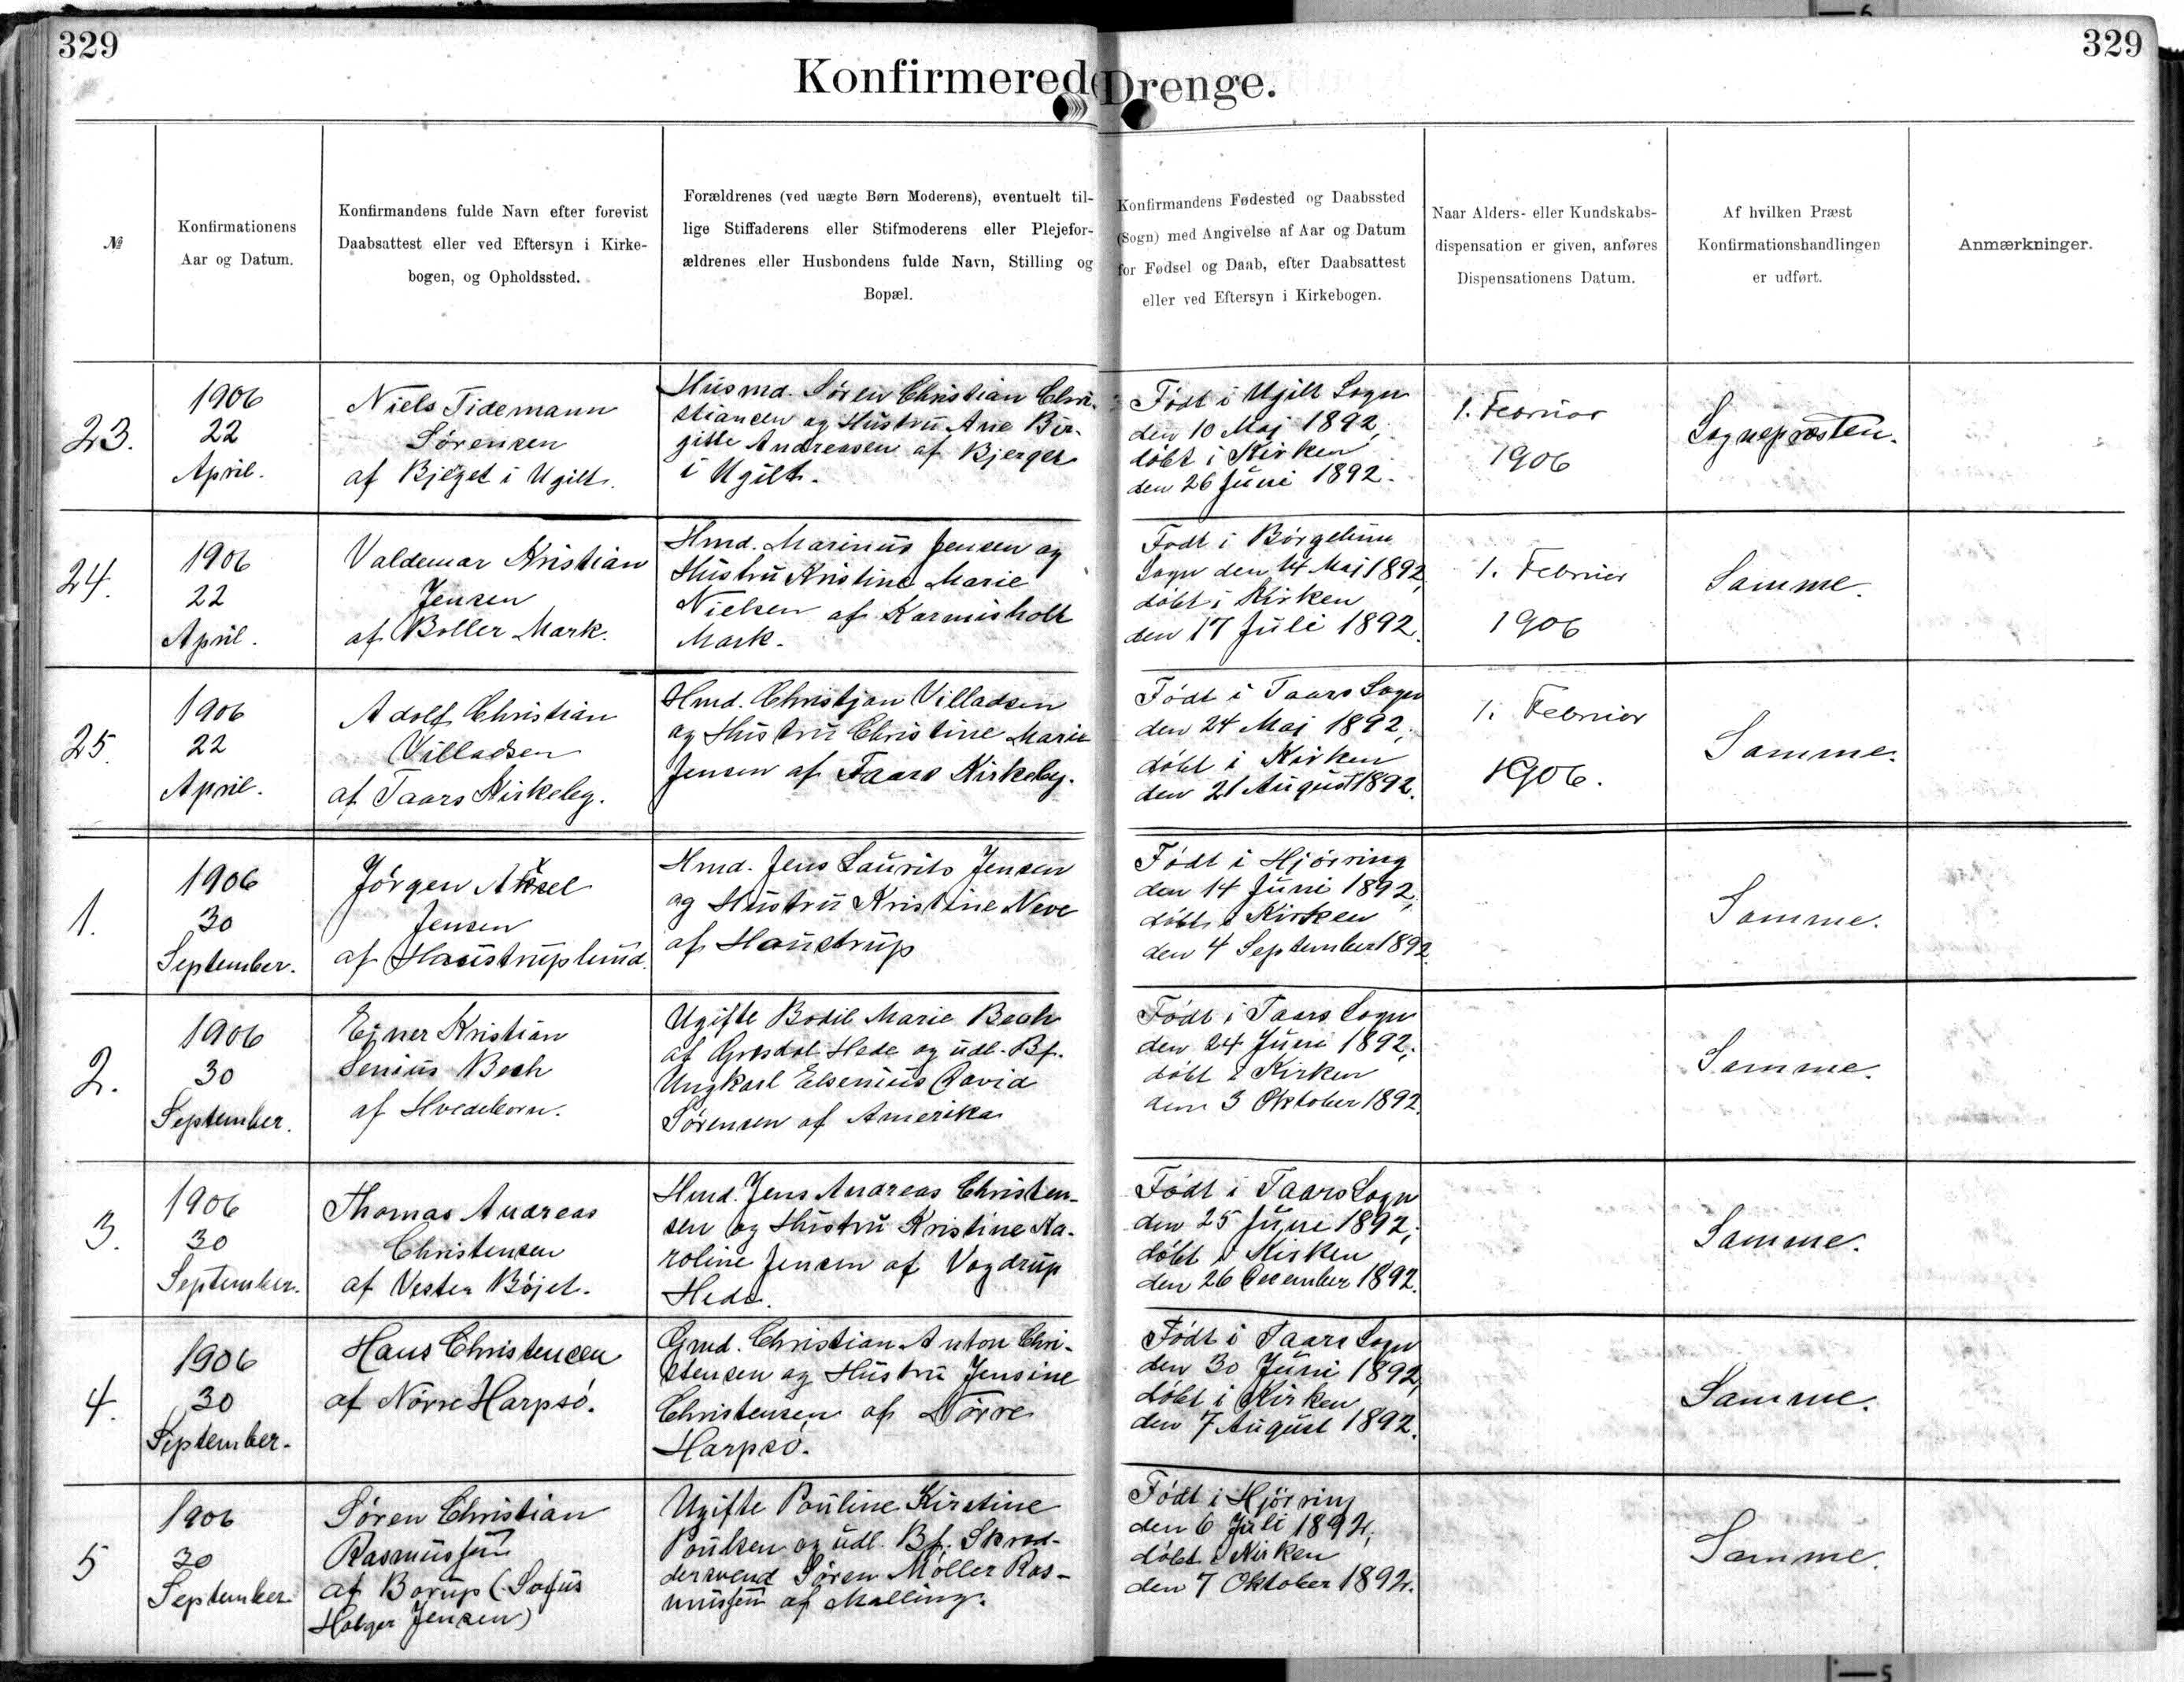 329
329
Konfirmerede Drenge.
№
Konfirmationens
Aar og Datum.
Konfirmandens fulde Navn efter forevist
Daabsattest eller ved Eftersyn i Kirke-
bogen, og Opholdssted.
Forældrenes (ved uægte Børn Moderens), eventuelt til-
lige Stiffaderens eller Stifmoderens eller Plejefor-
ældrenes eller Husbondens fulde Navn, Stilling og
Bopæl.
Konfirmandens Fødested og Daabssted
(Sogn) med Angivelse af Aar og Datum
for Fødsel og Daab, efter Daabsattest
eller ved Eftersyn i Kirkebogen.
Naar Alders- eller Kundskabs-
dispensation er given, anføres
Dispensationens Datum.
Af hvilken Præst
Konfirmationshandlingen
er udført.
Anmærkninger.
23.
1906
22
April.
Niels Tidemann
Sørensen
af Bjerget i Ugilt.
Husmd. Søren Christian Chri-
stiansen og Hustru Ane Bir-
gitte Andreasen af Bjerget
i Ugilt.
Født i Ugilt Sogn
den 10 Maj 1892,
døbt i Kirken
den 26 Juni 1892.
1. Februar
1906
Sognepræsten.
24.
1906
22
April.
Valdemar Kristian
Jensen
af Boller Mark.
Hmd. Marinus Jensen og
Hustru Kristine Marie
Nielsen af Karmisholt
Mark.
Født i Børgelum
Sogn den 14 Maj 1892,
døbt i Kirken
den 17 Juli 1892.
1. Februar
1906
Samme.
25.
1906
22
April.
Adolf Christian
Villadsen
af Taars Kirkeby.
Hmd. Christjan Villadsen
og Hustru Christine Marie
Jensen af Taars Kirkeby.
Født i Taars Sogn
den 24 Maj 1892,
døbt i Kirken
den 21 August 1892.
1. Februar
1906.
Samme.
1.
1906
30
September.
Jørgen Axel
Jensen
af Haustruplund.
Hmd. Jens Laurits Jensen
og Hustru Kristine Neve
af Haustrup
Født i Hjørring
den 14 Juni 1892,
døbt i Kirken
den 4 September 1892.
Samme.
2.
1906
30
September.
Ejner Kristian
Senius Bech
af Hvedeborn.
Ugifte Bodil Marie Bech
af Græsdal Hede og udl. Bf.
Ungkarl Elsenius David
Sørensen af Amerika
Født i Taars Sogn
den 24 Juni 1892,
døbt i Kirken
den 3 Oktober 1892.
Samme.
3.
1906
30
September.
Thomas Andreas
Christensen
af Vester Bøjet.
Hmd. Jens Andreas Christen-
sen og Hustru Kristine Ka-
roline Jensen af Vogdrup
Hede.
Født i Taars Sogn
den 25 Juni 1892,
døbt i Kirken
den 26 December 1892.
Samme.
4.
1906
30
September.
Hans Christensen
af Nørre Harpsø.
Gmd. Christian Anton Chri-
stensen og Hustru Jensine
Christensen af Nørre
Harpsø.
Født i Taars Sogn
den 30 Juni 1892,
døbt i Kirken
den 7 August 1892.
Samme.
5
1906
30
September.
Søren Christian
Rasmussen
af Borup (Sofus
Holger Jensen)
Ugifte Pouline Kirstine
Poulsen og udl. Bf. Skræd-
dersvend Søren Møller Ras-
mussen af Malling.
Født i Hjørring
den 6 Juli 1892,
døbt i Kirken
den 7 Oktober 1892.
Samme.